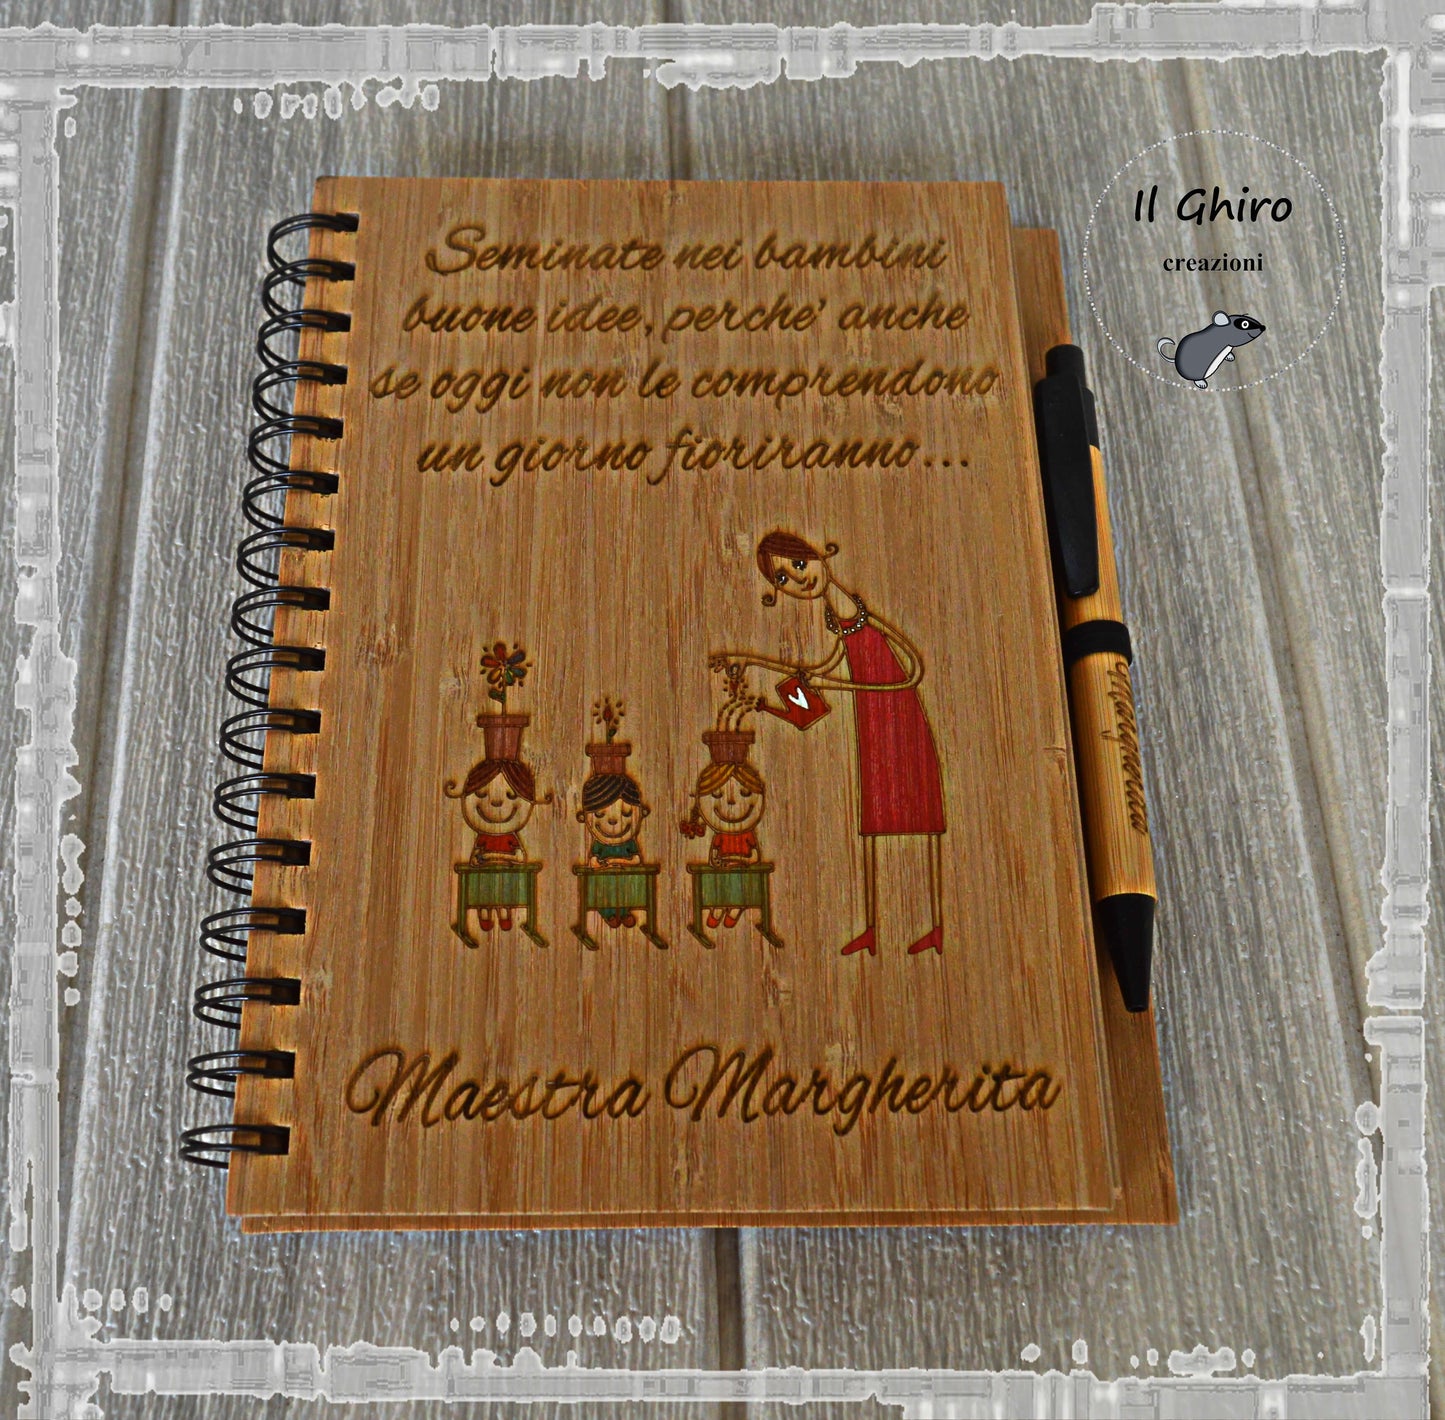 Seminate nei bambini
buone idee, perche' anche
se oggi non le comprendono
un giorno fioriranno...
Maestra Margherita
Margherita
Il Ghiro
creazioni